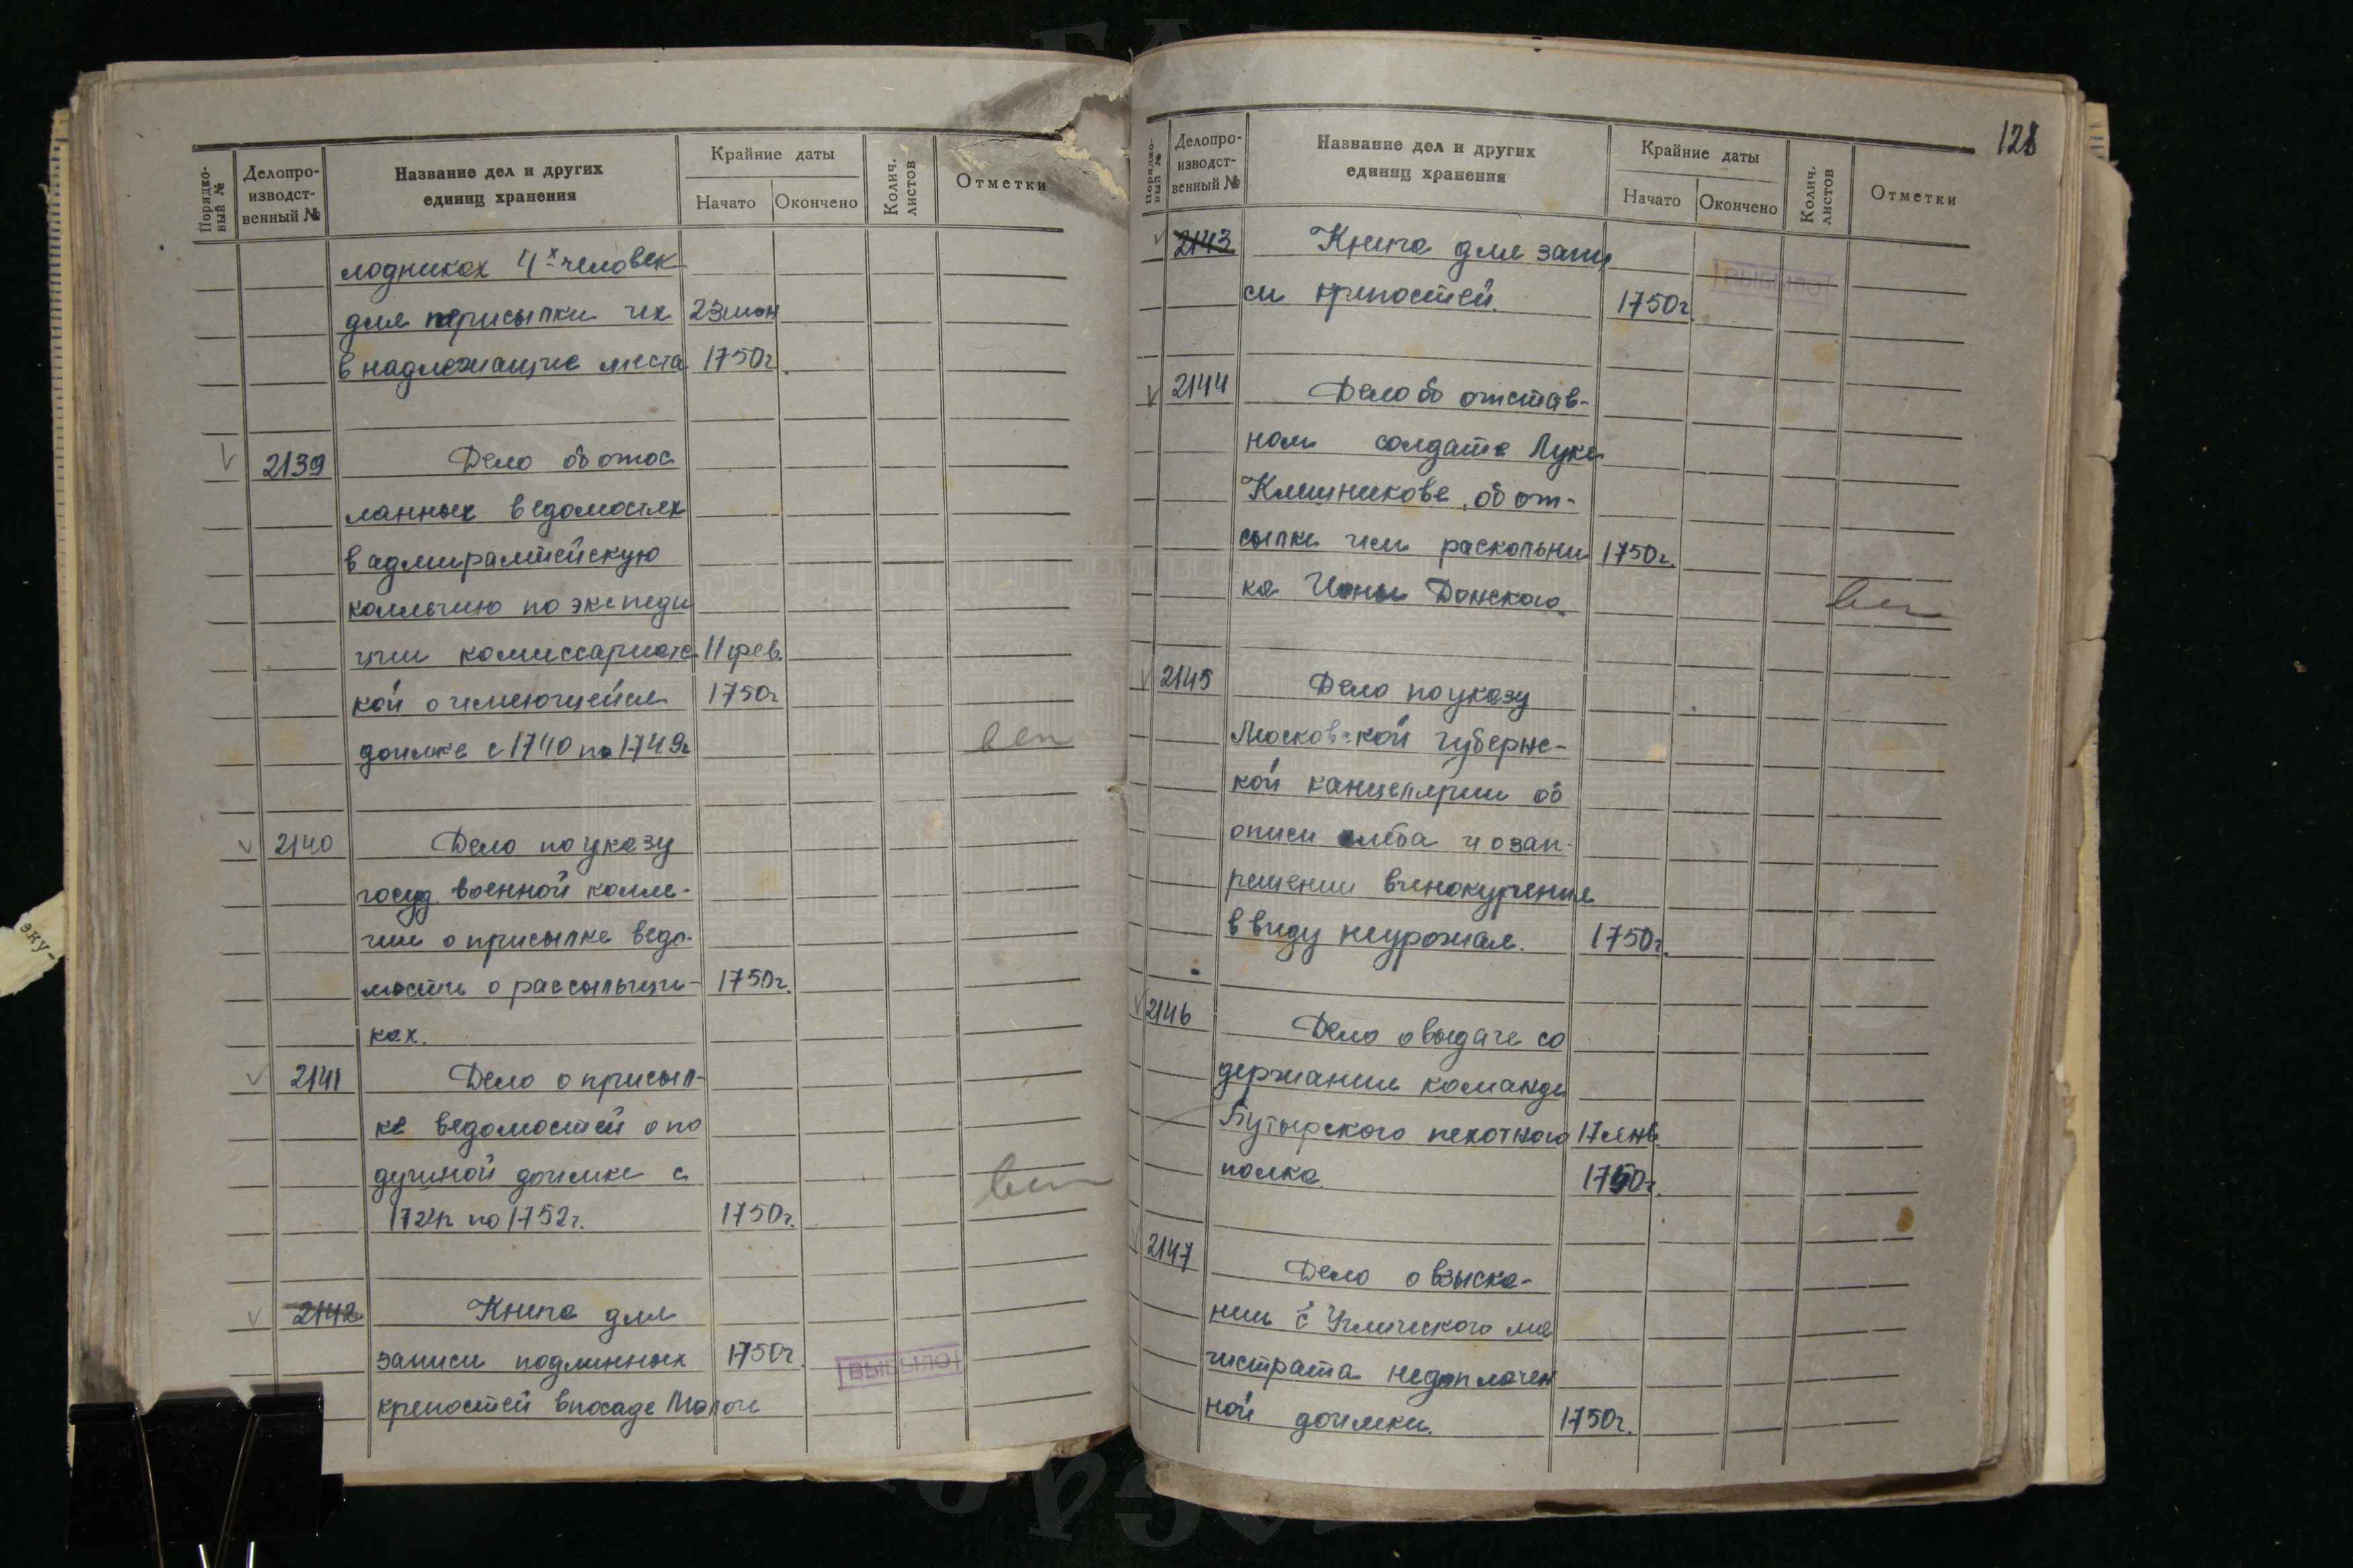 Порядко-
вый №
Делопро-
изводст-
венный №
Название дел и других
единиц хранения
Крайние даты
Начато
Окончено
Колич.
листов
Отметки
лодниках 4х человек
для пересылки их 23 июн
в надлежащие места 1750г.
2139 Дело об отос
ланных ведомостях
в адмиралтейскую
коллегию по экспеди
ции комиссариатс 11 фев.
кой о имеющейся 1750г
доимке с 1740 по 1749г
2140 Дело по указу
госуд. военной колле-
гии о присылке ведо-
мости о рассыльщи- 1750г.
ках.
2141 Дело о присыл-
ке ведомостей о по
душной доимке с
1724г по 1752г. 1750г.
2142 Книга для
записи подлинных 1750г.
ВЫБЫЛО
крепостей в посаде Мологе
эку-
128
Порядко-
вый №
Делопро-
изводст-
венный №
Название дел и других
единиц хранения
Крайние даты
Начато
Окончено
Колич.
листов
Отметки
2143 Книга для запи
ВЫБЫЛО
си крепостей. 1750г.
2144 Дело об отстав-
ном солдате Луке
Клишникове, об от-
сылке им раскольни 1750г.
ка Ионы Донского.
2145 Дело по указу
Московской губернс-
кой канцелярии об
описи хлеба и о зап-
рещении винокурения
в виду неурожая. 1750г.
2146 Дело о выдаче со
держании команде
Бутырского пехотного 17 янв.
полка. 1750г.
2147 Дело о взыска-
нии с Угличского ма
гистрата недоплачен
ной доимки. 1750г.